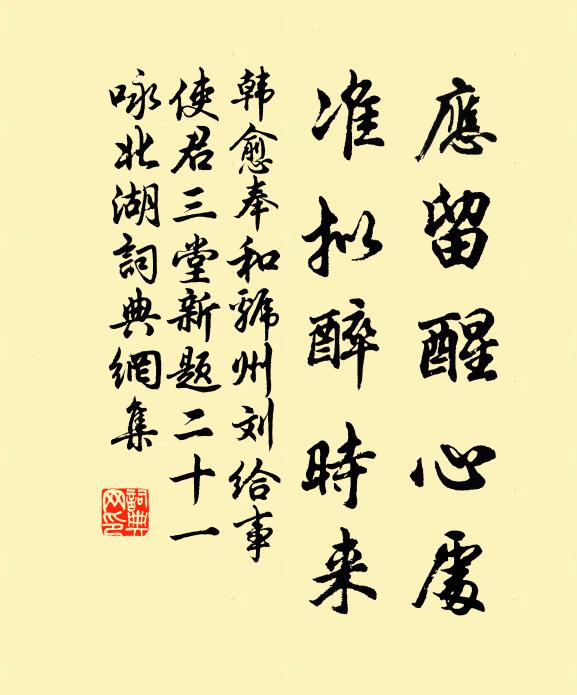 應留醒心處
准拟醉時来
韩愈奉和虢州刘给事
使君三堂新题二十一
咏北湖詞典網集
詞典网印